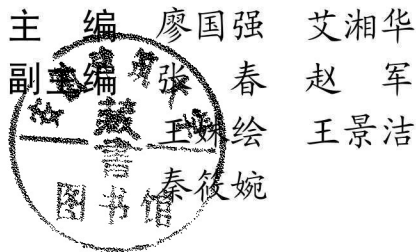 主　编　廖国强　艾湘华
副主编　张　春　赵　军
王姝绘　王景洁
秦筱婉
藏书
图书馆